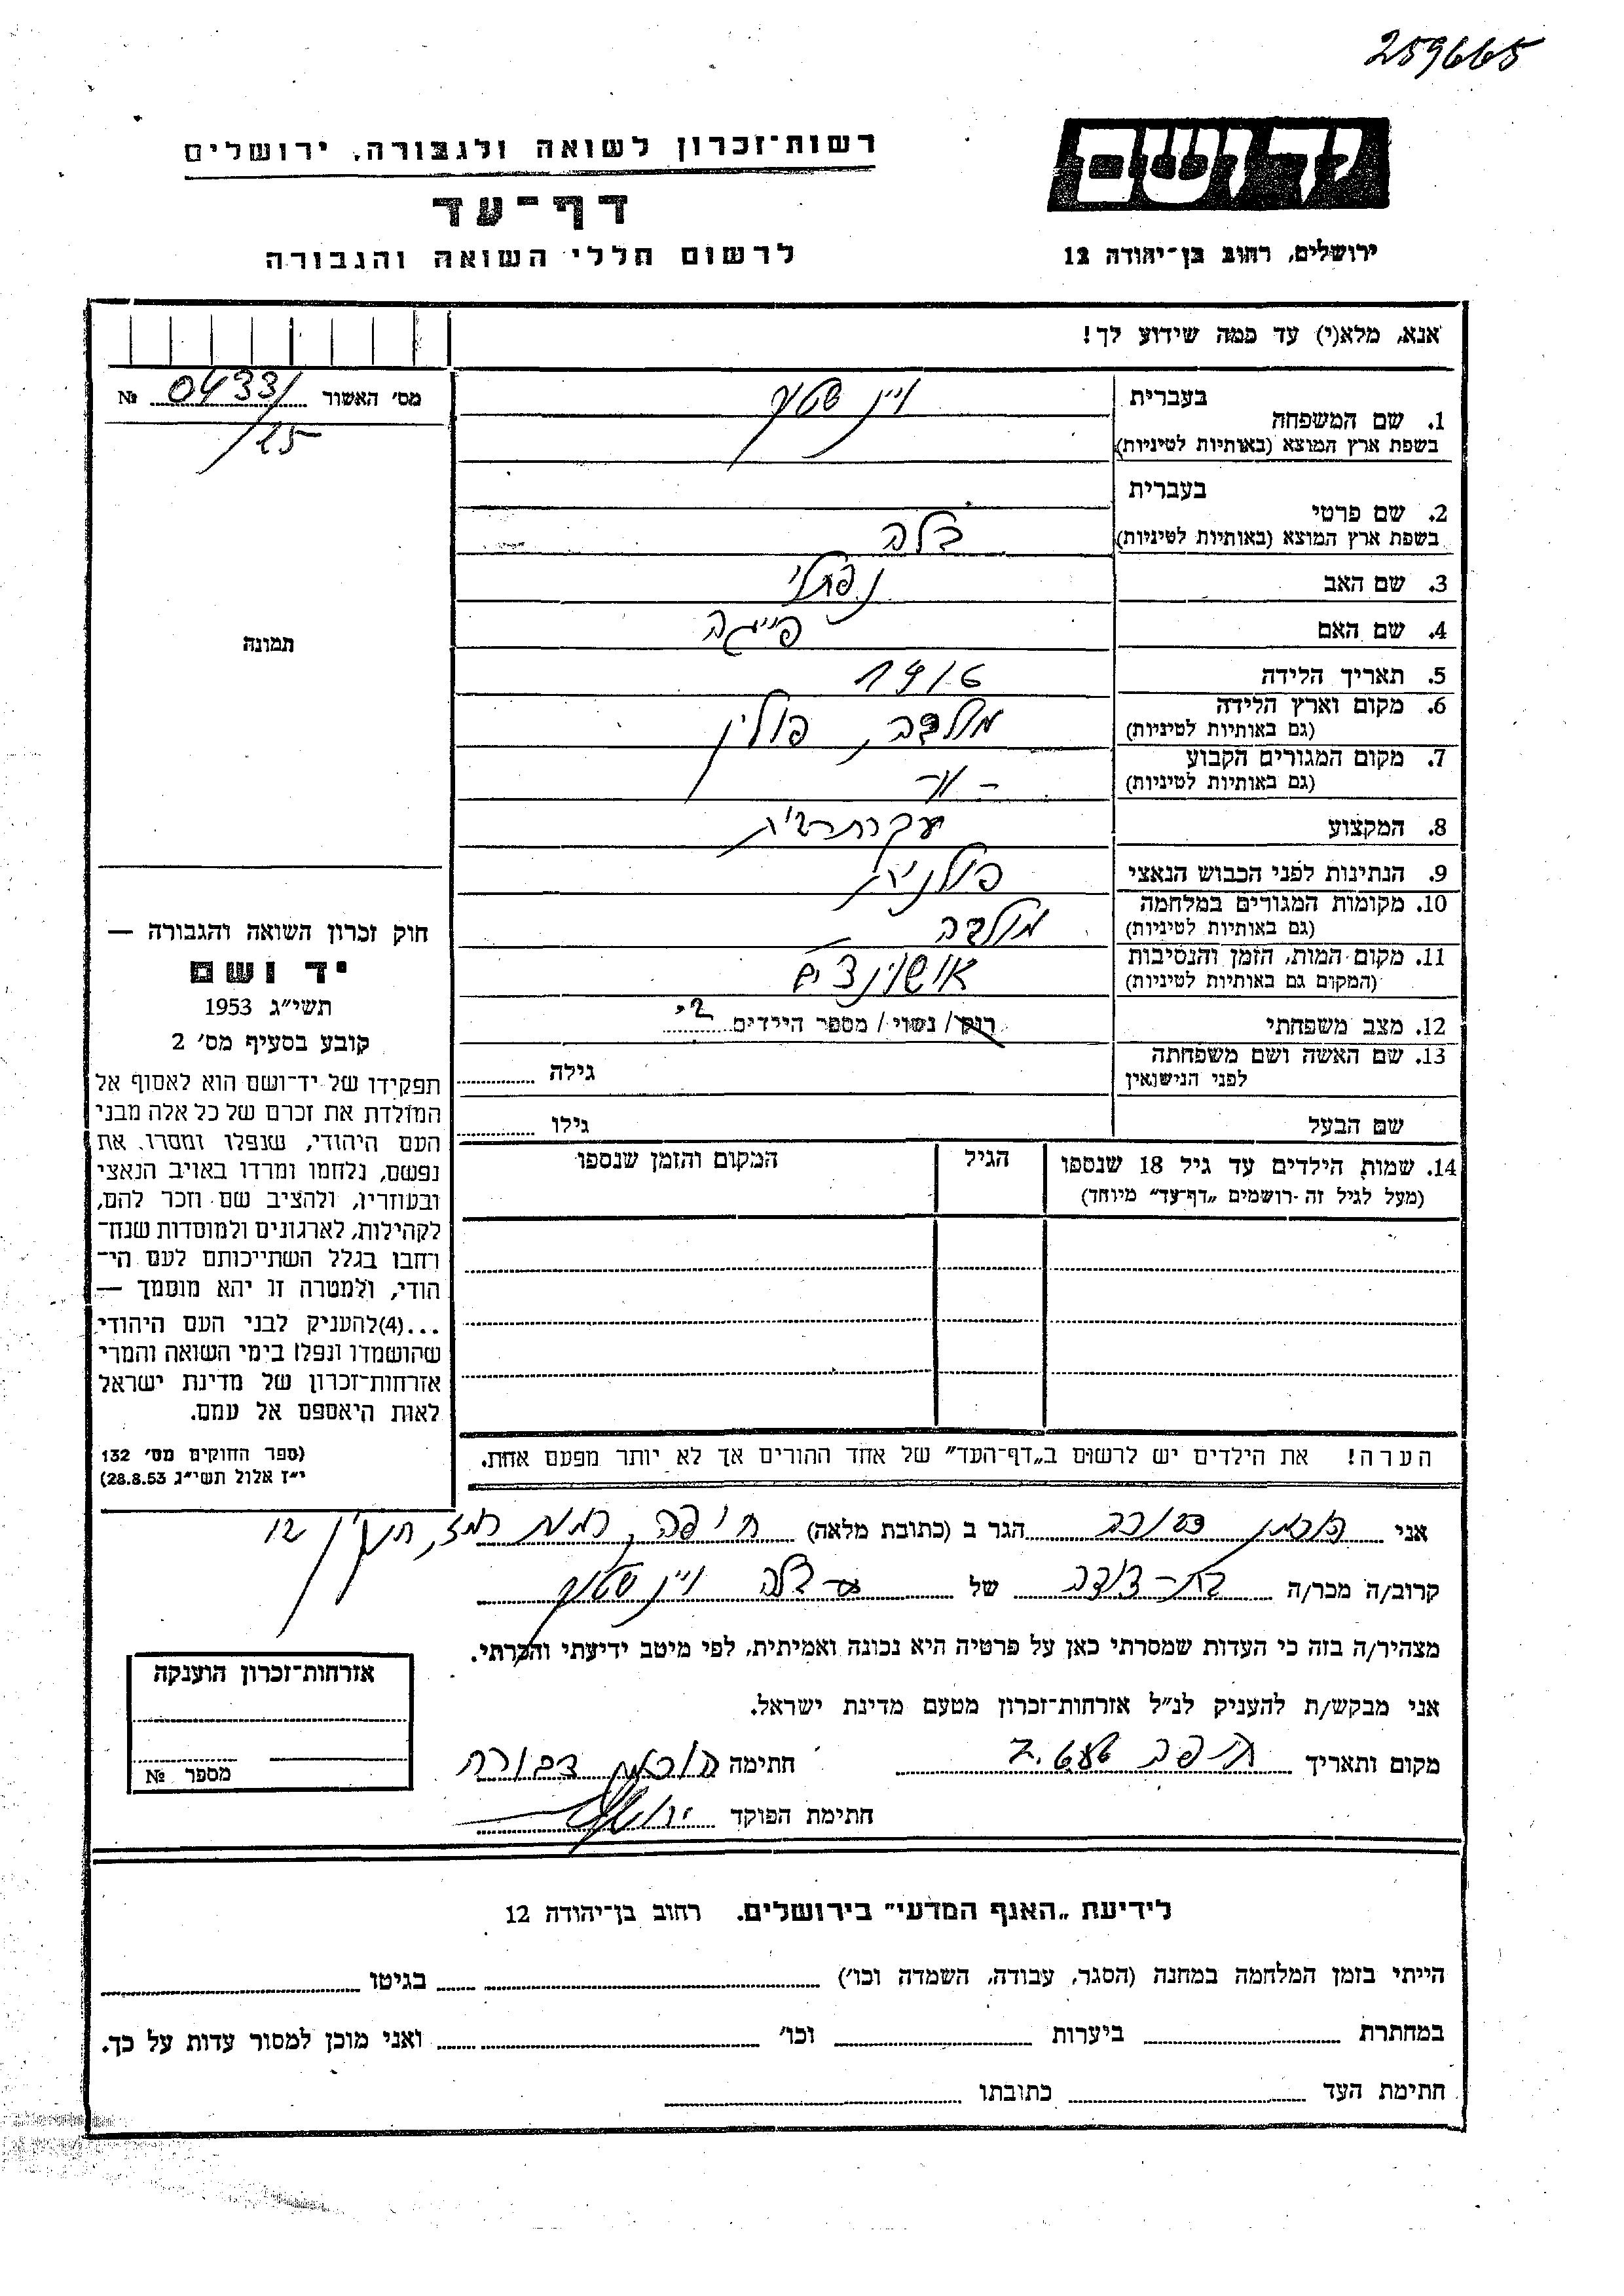 259665
יד ושם
רשות־זכרון לשואה ולגבורה, ירושלים
דף־עד
ירושלים, רחוב בן־יהודה 12
לרשום חללי השואה והגבורה
אנא, מלא(י) עד כמה שידוע לך!
מס׳ האשור 0433/ №
/25
בעברית
1. שם המשפחה ויינשטוק
בשפת ארץ המוצא (באותיות לטיניות)
בעברית
2. שם פרטי
בשפת ארץ המוצא (באותיות לטיניות) בלה
3. שם האב נפתלי
4. שם האם פייגה
תמונה
5. תאריך הלידה 1916
6. מקום וארץ הלידה פולין
(גם באותיות לטיניות)
7. מקום המגורים הקבוע - " -
(גם באותיות לטיניות)
8. המקצוע עקרת בית
9. הנתינות לפני הכבוש הנאצי פולנית
10. מקומות המגורים במלחמה
(גם באותיות לטיניות)
11. מקום המות, הזמן והנסיבות
(המקום גם באותיות לטיניות) אושוינצים
12. מצב משפחתי רוק / נשוי / מספר הילדים 2
13. שם האשה ושם משפחתה גילה
לפני הנישואין
שם הבעל גילו
14. שמות הילדים עד גיל 18 שנספו הגיל המקום והזמן שנספו
(מעל לגיל זה רושמים „דף־עד” מיוחד)
הערה! את הילדים יש לרשום ב„דף־העד” של אחד ההורים אך לא יותר מפעם אחת.
חוק זכרון השואה והגבורה —
יד ושם
תשי״ג 1953
קובע בסעיף מס׳ 2
תפקידו של יד־ושם הוא לאסוף אל
המולדת את זכרם של כל אלה מבני
העם היהודי, שנפלו ומסרו את
נפשם, נלחמו ומרדו באויב הנאצי
ובעוזריו, ולהציב שם וזכר להם,
לקהילות, לארגונים ולמוסדות שנח־
רחבו בגלל השתייכותם לעם הי־
הודי, ולמטרה זו יהא מוסמך —
...(4)להעניק לבני העם היהודי
שהושמדו ונפלו בימי השואה והמרי
אזרחות־זכרון של מדינת ישראל
לאות היאספם אל עמם.
(ספר החוקים מס׳ 132
י״ז אלול תשי״ג 28.8.53)
אני הורמן דבורה הגר ב (כתובת מלאה) חיפה, רמת רמז, 12
קרוב/ה מכר/ה בת-דודה של בלה ויינשטוק
מצהיר/ה בזה כי העדות שמסרתי כאן על פרטיה היא נכונה ואמיתית, לפי מיטב ידיעתי והכרתי.
אני מבקש/ת להעניק לנ״ל אזרחות־זכרון מטעם מדינת ישראל.
מקום ותאריך חיפה חתימה הורמן דבורה
חתימת הפוקד
אזרחות־זכרון הוענקה
מספר №
לידיעת „האגף המדעי” בירושלים. רחוב בן־יהודה 12
הייתי בזמן המלחמה במחנה (הסגר, עבודה, השמדה וכו׳) בגיטו
במחתרת ביערות וכו׳ ואני מוכן למסור עדות על כך.
חתימת העד כתובתו